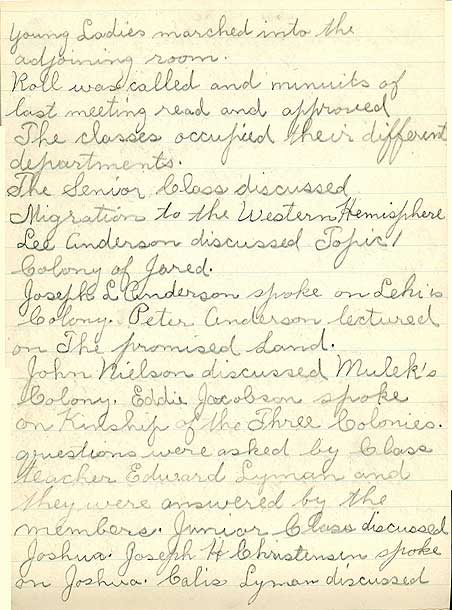 Young Ladies marched into the
adjoining room.
Roll was called and minuits of
last meeting read and approved
The classes occupied their different
departments.
The Senior Class discussed
Migration to the Western Hemisphere
Lee Anderson discussed Topic 1
Colony of Jared.
Joseph L Anderson spoke on Lehi's
Colony. Peter Anderson lectured
on The promised Land.
John Nielson discussed Mulek's
Colony. Eddie Jacobson spoke
on Kinship of the Three Colonies.
questions were asked by Class
teacher Edward Lyman and
they were answered by the
members. Junior Class discussed
Joshua. Joseph H Christensen spoke
on Joshua. Calis Lyman discussed